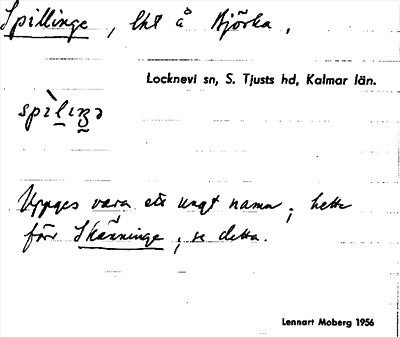 Spillinge, lht å Björka,
Locknevi sn, S. Tjusts hd, Kalmar län.
Uppges vara ett ungt namn; hette
förr Skänninge, se detta.
Lennart Moberg 1956